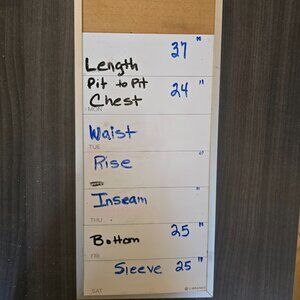 Length 37 "
Pit to Pit
Chest 24 "
MON
Waist
TUE
Rise "
Inseam "
THU
Bottom 25 "
FRI
Sleeve 25 "
SAT